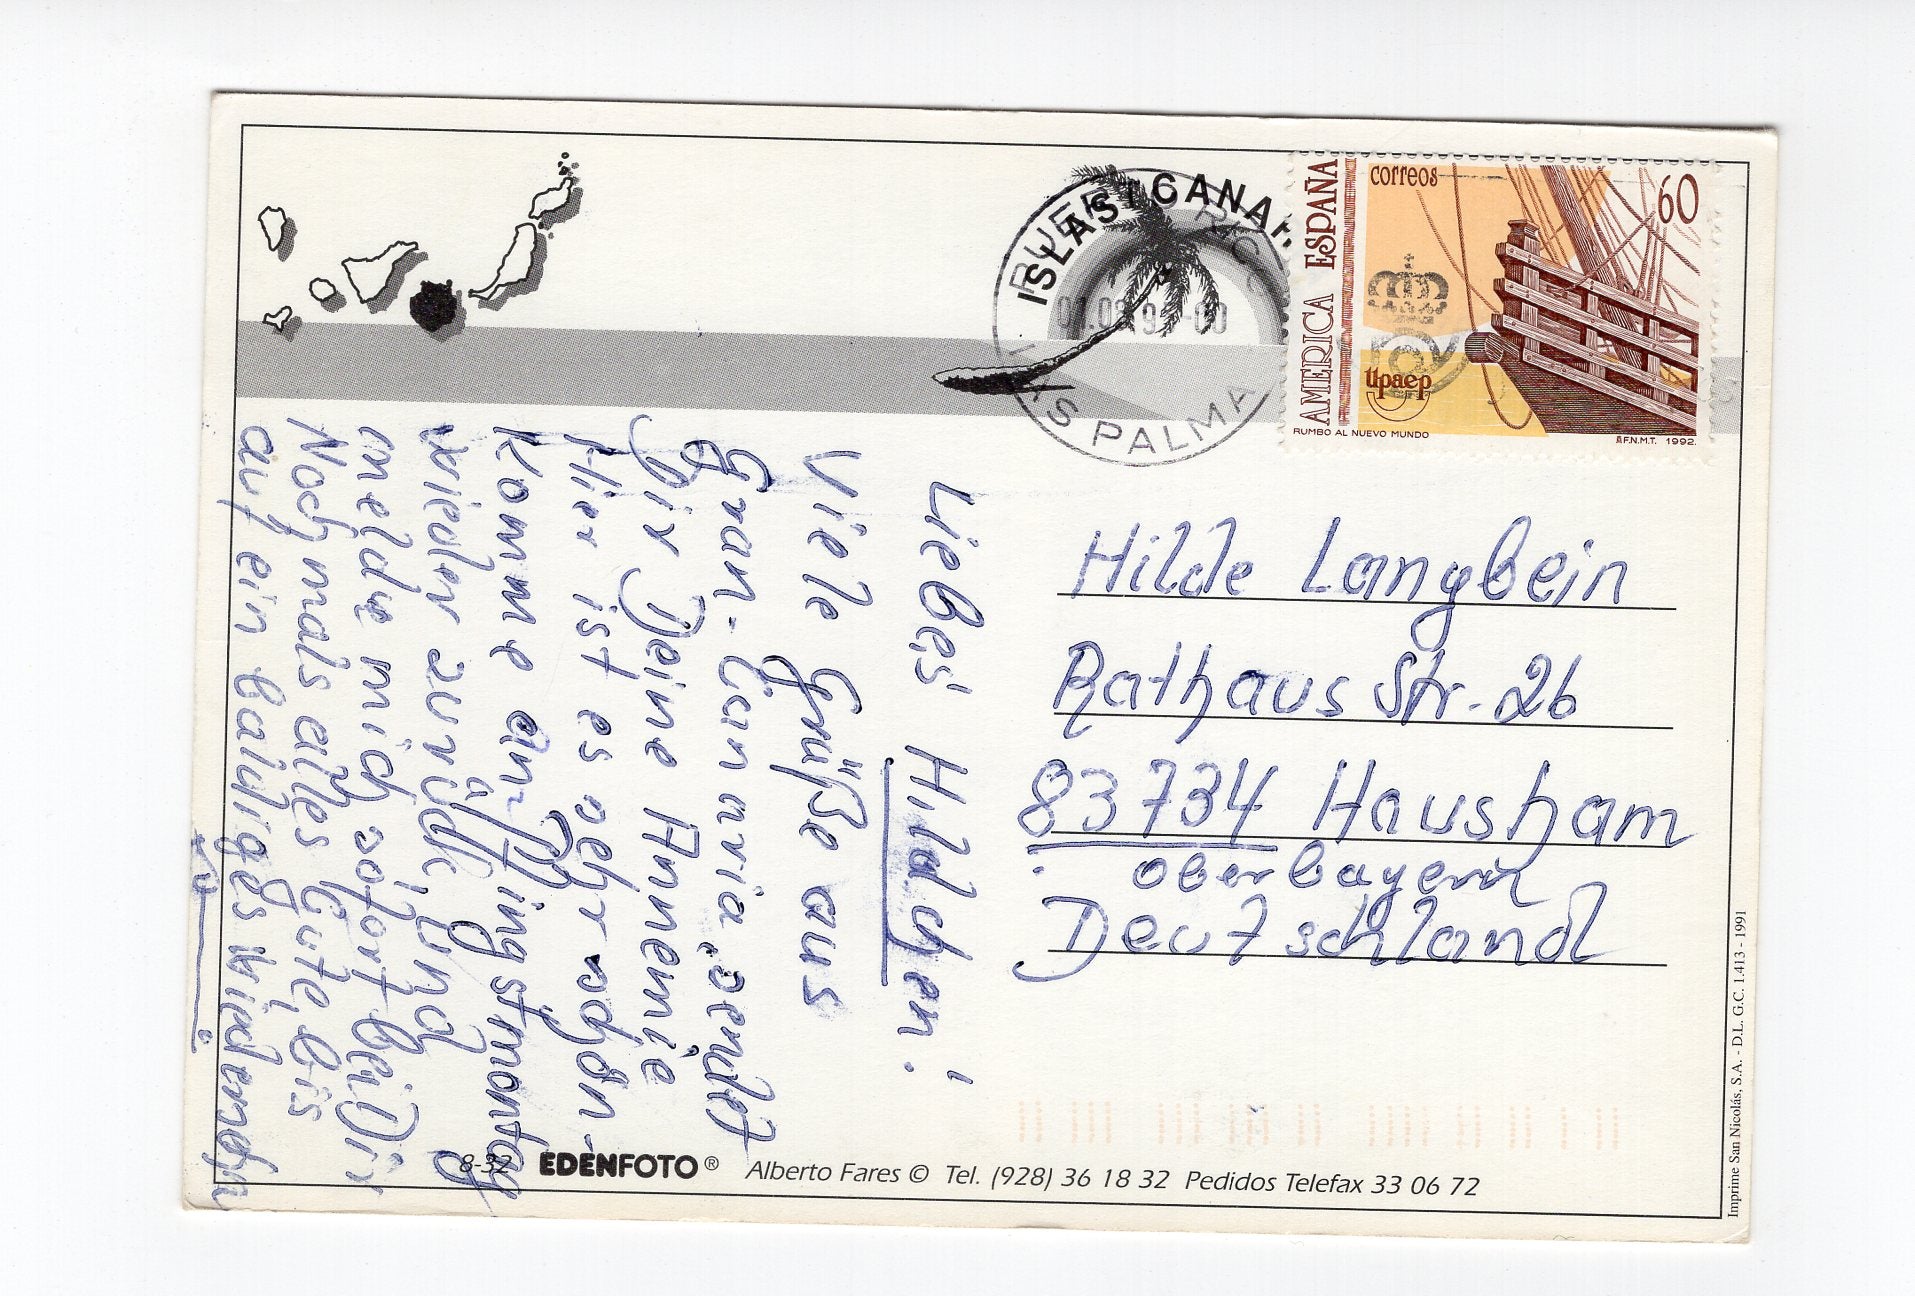 Liebes Hildchen!
Viele Grüße aus
Gran-Canaria sendet
Dir Deine Annemie
Hier ist es sehr schön.
Komme am Pfingstmontag
wieder zurück, und
melde mich sofort bei Dir
Nochmals alles Gute, bis
auf ein baldiges Wiedersehn
ISLAS CANAR
LAS PALMA
AMERICA ESPAÑA
correos
60
upaep
RUMBO AL NUEVO MUNDO
F.N.M.T. 1992.
Hilde Langbein
Rathaus Str. 26
83734 Hausham
Oberbayern
Deutschland
8-32 EDENFOTO® Alberto Fares © Tel. (928) 36 18 32 Pedidos Telefax 33 06 72
Imprime San Nicolás, S.A. - D.L. G.C. 1.413 - 1991